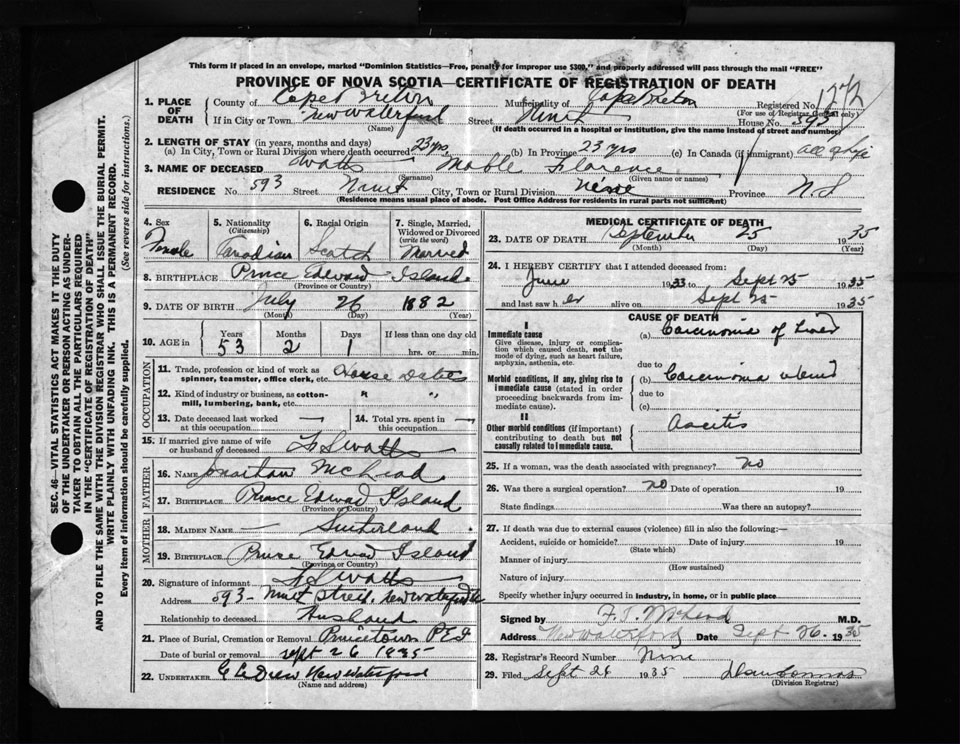 This form if placed in an envelope, marked "Dominion Statistics—Free, penalty for improper use $300," and properly addressed will pass through the mail "FREE"
PROVINCE OF NOVA SCOTIA—CERTIFICATE OF REGISTRATION OF DEATH
1. PLACE OF DEATH
County of Cape Breton Municipality of Cape Breton Registered No.
(For use of Registrar General only)
If in City or Town New Waterford Street House No. 593
(Name) (If death occurred in a hospital or institution, give the name instead of street and number)
2. LENGTH OF STAY (in years, months and days)
(a) In City, Town or Rural Division where death occurred 23 yrs. (b) In Province 23 yrs (c) In Canada (if immigrant) all of life
3. NAME OF DECEASED Watts Mable Florence
(Surname) (Given name or names)
RESIDENCE No. 593 Street City, Town or Rural Division Province N.S
(Residence means usual place of abode. Post Office Address for residents in rural parts not sufficient)
4. Sex Female
5. Nationality (Citizenship) Canadian
6. Racial Origin Scotch
7. Single, Married, Widowed or Divorced (write the word) Married
8. BIRTHPLACE Prince Edward Island
(Province or Country)
9. DATE OF BIRTH July 26 1882
(Month) (Day) (Year)
10. AGE in Years 53 Months 2 Days 1 If less than one day old hrs. or min.
OCCUPATION
11. Trade, profession or kind of work as spinner, teamster, office clerk, etc. House
12. Kind of industry or business, as cotton-mill, lumbering, bank, etc. " "
13. Date deceased last worked at this occupation —
14. Total yrs. spent in this occupation —
15. If married give name of wife or husband of deceased Watts
FATHER
16. NAME Jonathan McLeod
17. BIRTHPLACE Prince Edward Island
(Province or Country)
MOTHER
18. MAIDEN NAME — Sutherland
19. BIRTHPLACE Prince Edward Island
(Province or Country)
20. Signature of informant Watts
Address 593 – Street. New Waterford
Relationship to deceased Husband
21. Place of Burial, Cremation or Removal Princetown P E I
Date of burial or removal Sept 26 1835
22. UNDERTAKER New Waterford
(Name and address)
MEDICAL CERTIFICATE OF DEATH
23. DATE OF DEATH September 25 1935
(Month) (Day) (Year)
24. I HEREBY CERTIFY that I attended deceased from:
June 1933 to Sept 25 1935
and last saw her alive on Sept 25 1935
CAUSE OF DEATH
I
Immediate cause
Give disease, injury or complication which caused death, not the mode of dying, such as heart failure, asphyxia, asthenia, etc.
(a) Carcinoma of Liver
due to
Morbid conditions, if any, giving rise to immediate cause (stated in order proceeding backwards from immediate cause).
(b) Carcinoma
due to
(c)
II
Other morbid conditions (if important) contributing to death but not causally related to immediate cause.
Ascitis
25. If a woman, was the death associated with pregnancy? no
26. Was there a surgical operation? no Date of operation 19
State findings Was there an autopsy?
27. If death was due to external causes (violence) fill in also the following:—
Accident, suicide or homicide? Date of injury 19
(State which)
Manner of injury
(How sustained)
Nature of injury
Specify whether injury occurred in industry, in home, or in public place
Signed by F. T. McLeod M.D.
Address New Waterford Date Sept 26. 1935
28. Registrar's Record Number Nine
29. Filed Sept 26 1935
(Division Registrar)
SEC. 46—VITAL STATISTICS ACT MAKES IT THE DUTY
OF THE UNDERTAKER OR PERSON ACTING AS UNDER-
TAKER TO OBTAIN ALL THE PARTICULARS REQUIRED
IN THE "CERTIFICATE OF REGISTRATION OF DEATH"
AND TO FILE THE SAME WITH THE DIVISION REGISTRAR WHO SHALL ISSUE THE BURIAL PERMIT.
WRITE PLAINLY WITH UNFADING INK. THIS IS A PERMANENT RECORD.
Every item of information should be carefully supplied. (See reverse side for instructions.)